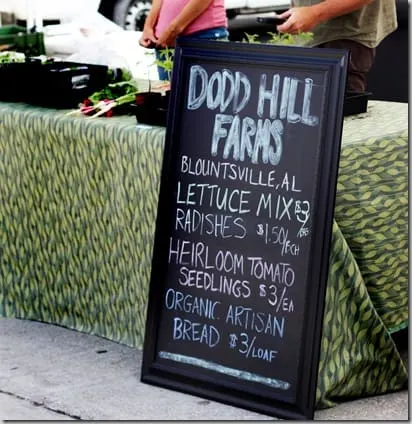 DODD HILL
FARMS
BLOUNTSVILLE, AL
LETTUCE MIX $3/
RADISHES $1.50/
HEIRLOOM TOMATO
SEEDLINGS $3/EA
ORGANIC ARTISAN
BREAD $3/LOAF